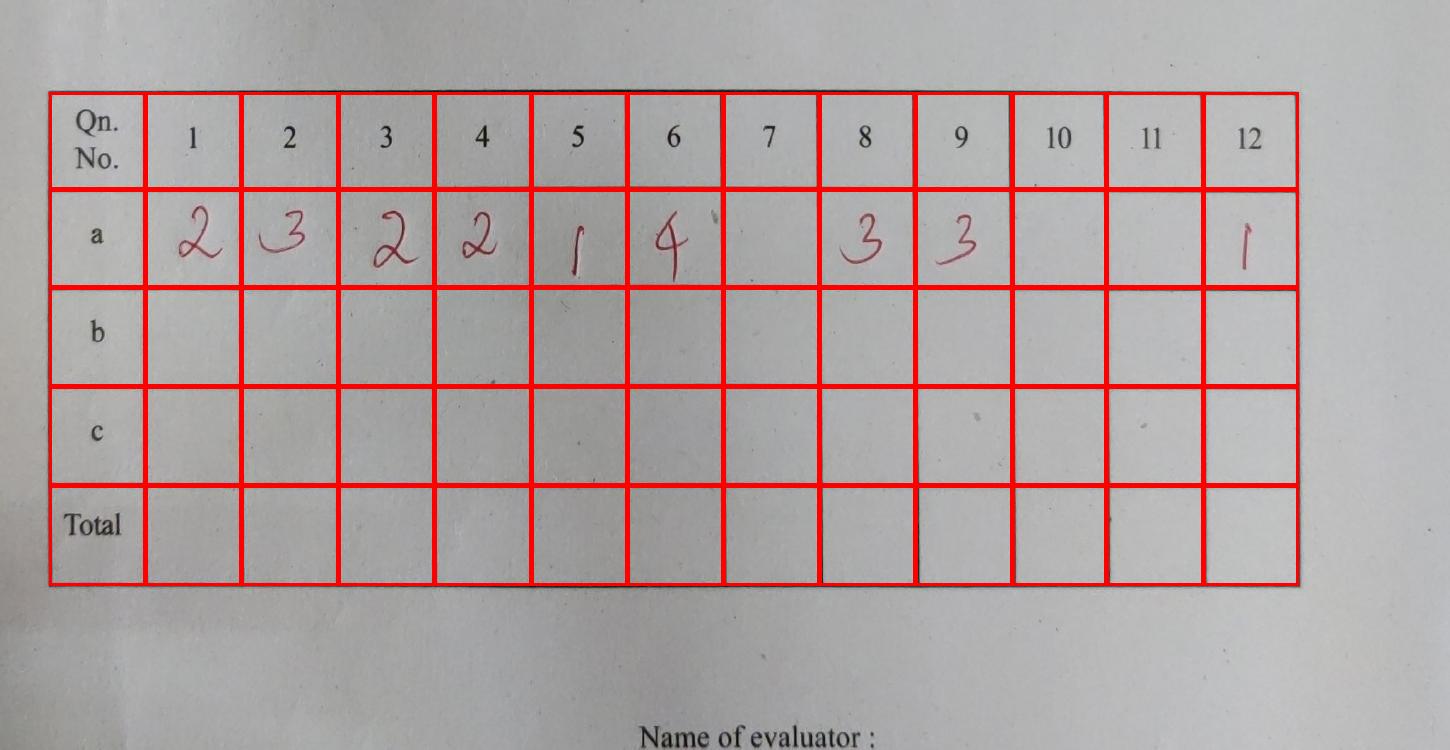 Qn. No. 1 2 3 4 5 6 7 8 9 10 11 12
a 2 3 2 2 1 4 3 3 1
b
c
Total
Name of evaluator :